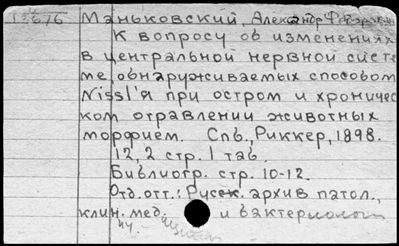 13676 Маньковский, Александр Федорович
К вопросу об изменениях
в центральной нервной систе-
ме, обнаруживаемых способом
Nissl'я при остром и хроничес-
ком отравлении животных
морфием. Спб., Риккер, 1898.
12, 2 стр. 1 таб.
Библиогр. стр. 10-12.
Отд. отт.: Русск. архив патол.,
клин. мед. и бактериологии